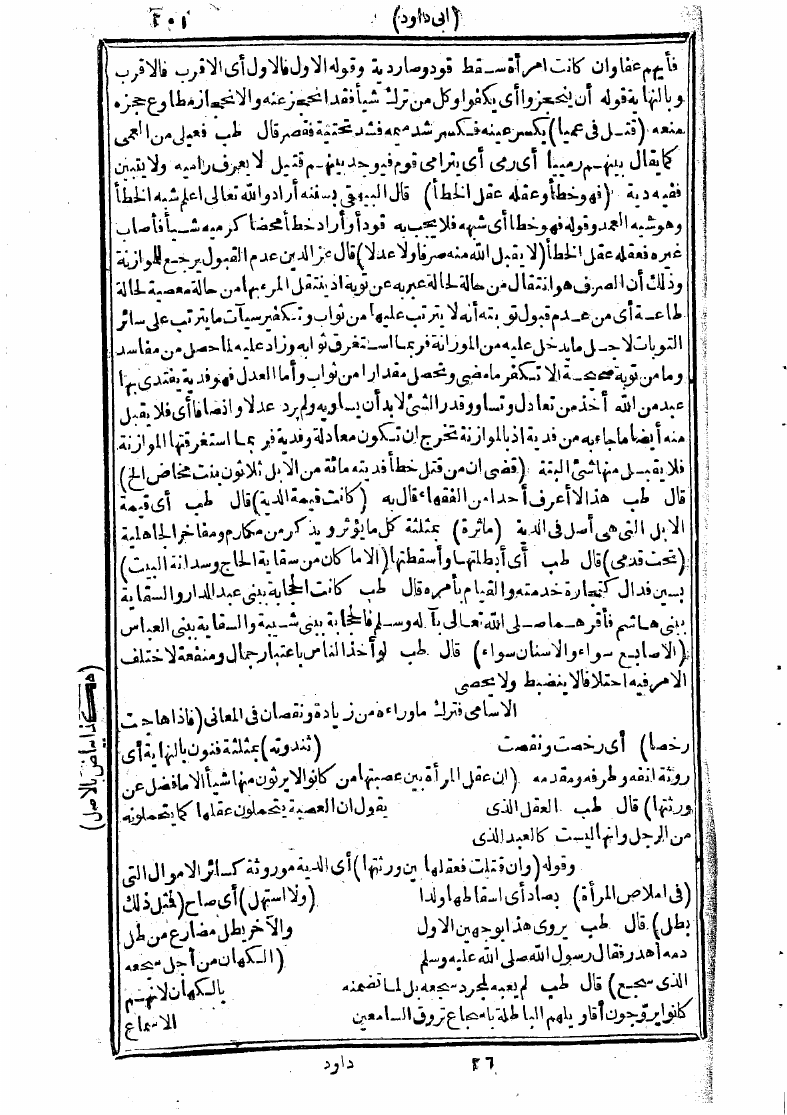 (ابى داود)
٢٠١
فأيهم عفا وان كانت امرأة سقط قود وصار دية وقوله الاول فالاول أى الاقرب فالاقرب
وبالنهاية قوله أن ينحجزوا أى يكفوا وكل من ترك شيأ فقد انحجز عنه والانحجاز مطاوع حجزه
منعه (قتل فى عميا) بكسر عينه فكسر شد ميمه فشد تحتية فقصر قال طب فعيلى من العمى
كما يقال بينهم رميا أى رمى أى يترامى قوم فيوجد بينهم قتيل لا يعرف راميه ولا يتبين
ففيه دية (فهو خطأ وعقله عقل الخطأ) قال البيهقى بسننه أراد والله تعالى اعلم شبه الخطأ
وهو شبه العمد وقوله فهو خطا أى شبهه فلا يجب به قود أو أراد خطأ محضا كرميه شيأ فأصاب
غيره فعقله عقل الخطأ (لا يقبل الله منه صرفا ولا عدلا) قال عز الدين عدم القبول يرجع للموازنة
وذلك أن الصرف هو انتقال من حالة لحالة عبر به عن توبة اذ ينتقل المرء بها من حالة معصية لحالة
طاعة أى من عدم قبول توبته أنه لا يترتب عليها من ثواب وتكفير سيآت ما يترتب على سائر
التوبات لاجل ما يدخل عليه من الموازنة فربما استغرق ثوابه وزاد عليه لما حصل من مفاسد
وما من توبة صحيحة الا تكفر ما مضى وتحصل مقدارا من ثواب وأما العدل فهو فدية يفتدى بها
عبد من الله أخذ من تعادل وتساو وقدر الشئ لا بد أن يساويه ولم يرد عدلا وانصافا أى فلا يقبل
منه أيضا ما جاء به من فدية اذ بالموازنة تخرج ان تكون معادلة وفدية فربما استغرقتها الموازنة
فلا يقبل منها شئ البتة (قضى ان من قتل خطأ فديته مائة من الابل ثلاثون بنت مخاض الخ)
قال طب هذا لا أعرف أحدا من الفقهاء قال به (كانت قيمة الدية) قال طب أى قيمة
الابل التى هى أصل فى الدية (مأثرة) بمثلثة كل ما يؤثر ويذكر من مكارم ومفاخر الجاهلية
(تحت قدمى) قال طب أى أبطلتها وأسقطتها (الا ما كان من سقاية الحاج وسدانة البيت)
بسين فدال كتجارة خدمته والقيام بأمره قال طب كانت الحجابة ببنى عبد الدار والسقاية
ببنى هاشم فأقرهما صلى الله تعالى بآله وسلم فالحجابة ببنى شيبة والسقاية ببنى العباس
(الاصابع سواء والاسنان سواء) قال طب لو أخذ الناس باعتبار جمال ومنفعة لاختلف
الامر فيه اختلافا لا ينضبط ولا يحصى
الاسامى فترك ما وراءه من زيادة ونقصان فى المعانى (فاذا هاجت
رخصا) أى رخصت ونقصت (ثندوته) بمثلثة فنون بالنهاية أى
روثة انفه وطرفه ومقدمه (ان عقل المرأة بين عصبتها من كانوا لا يرثون منها شيأ الا ما فضل عن
ورثتها) قال طب العقل الذى يقول ان العصبة يتحملون عقلها كما يتحملونه
من الرجل وانها ليست كالعبد الذى
وقوله (وان قتلت فعقلها بين ورثتها) أى الدية موروثة كسائر الاموال التى
(فى املاص المرأة) بصاد أى اسقاطها ولدا (ولا استهل) أى صاح (فمثل ذلك
بطل) قال طب يروى هذا بوجهين الاول والآخر يطل مضارع من طل
دمه أهدر فقال رسول الله صلى الله عليه وسلم (الكهان من أجل سجعه
الذى سجع) قال طب لم يعبه لمجرد سجعه بل لما تضمنه بالكهان لانهم
كانوا يروّجون أقاويلهم الباطلة باسجاع تروق السامعين الاسماع
هكذا بياض بالاصل)
٢٦ داود